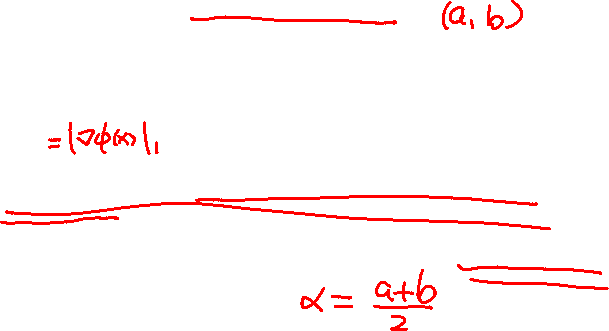 (a, b)
=|∇φ(x)|,
α = (a+b)/2